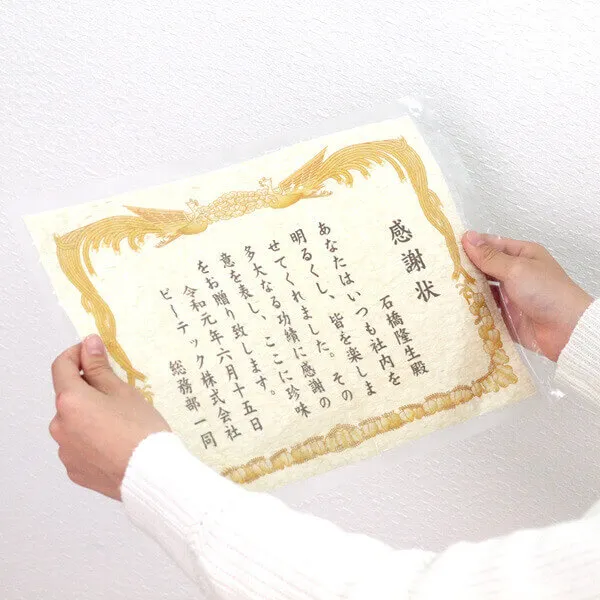 感謝状
石橋隆生殿
あなたはいつも社内を
明るくし、皆を楽しま
せてくれました。その
多大なる功績に感謝の
意を表し、ここに珍味
をお贈り致します。
令和元年六月十五日
ビーテック株式会社
総務部一同